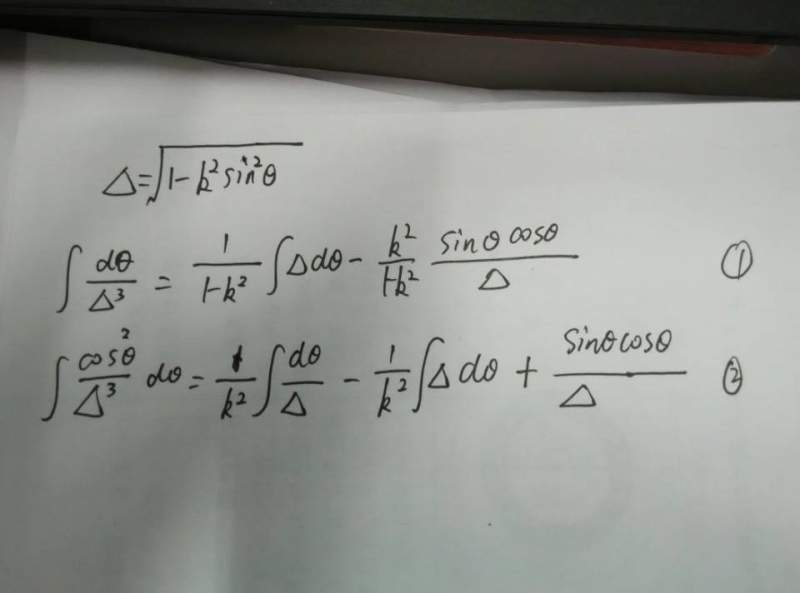 Δ=√(1-k²sin²θ)
∫ dθ/Δ³ = 1/(1-k²) ∫Δdθ - k²/(1-k²) sinθcosθ/Δ ①
∫ cos²θ/Δ³ dθ = 1/k² ∫ dθ/Δ - 1/k² ∫Δdθ + sinθcosθ/Δ ②